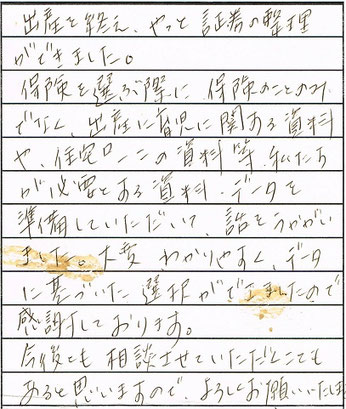 出産を終え、やっと証券の整理
ができました。
保険を選ぶ際に 保険のことのみ
でなく、出産に育児に関する資料
や、住宅ローンの資料等、私たち
が必要とする資料・データを
準備していただいて、話をうかがい
ました。大変 わかりやすく、データ
に基づいた 選択ができましたので
感謝しております。
今後とも 相談させていただくことも
あると思いますので、よろしくお願いいたしま